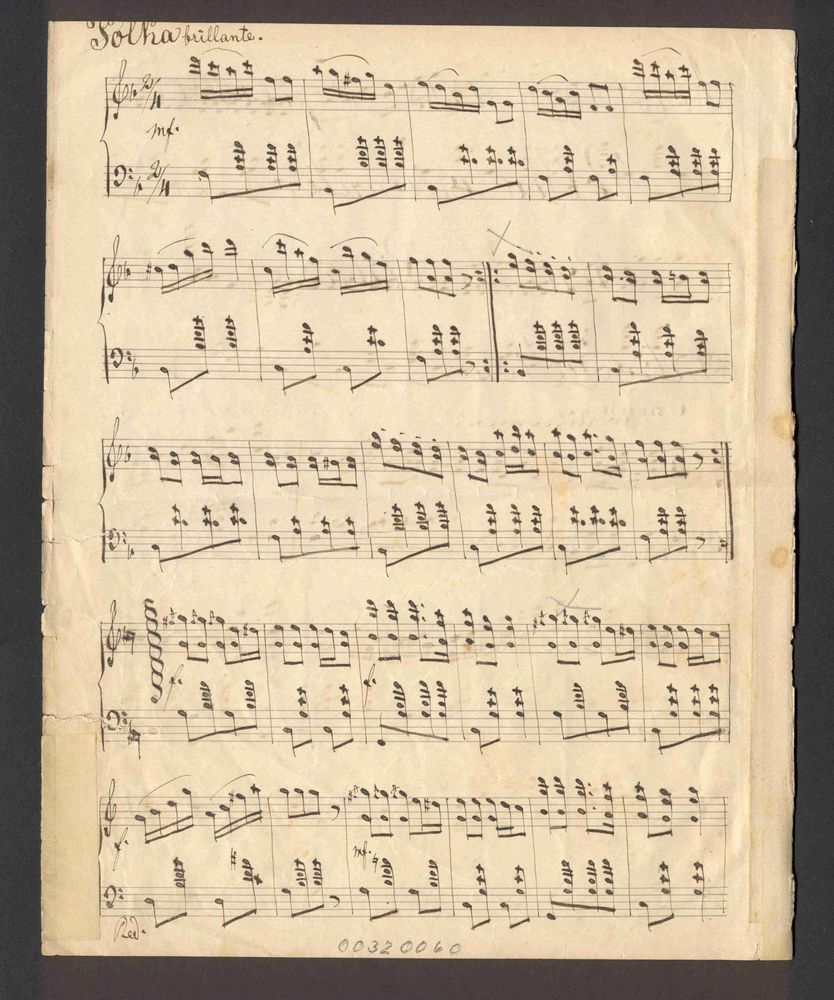 Polka brillante.
2/4
mf.
2/4
f.
f.
f.
mf.
Ped.
00320060